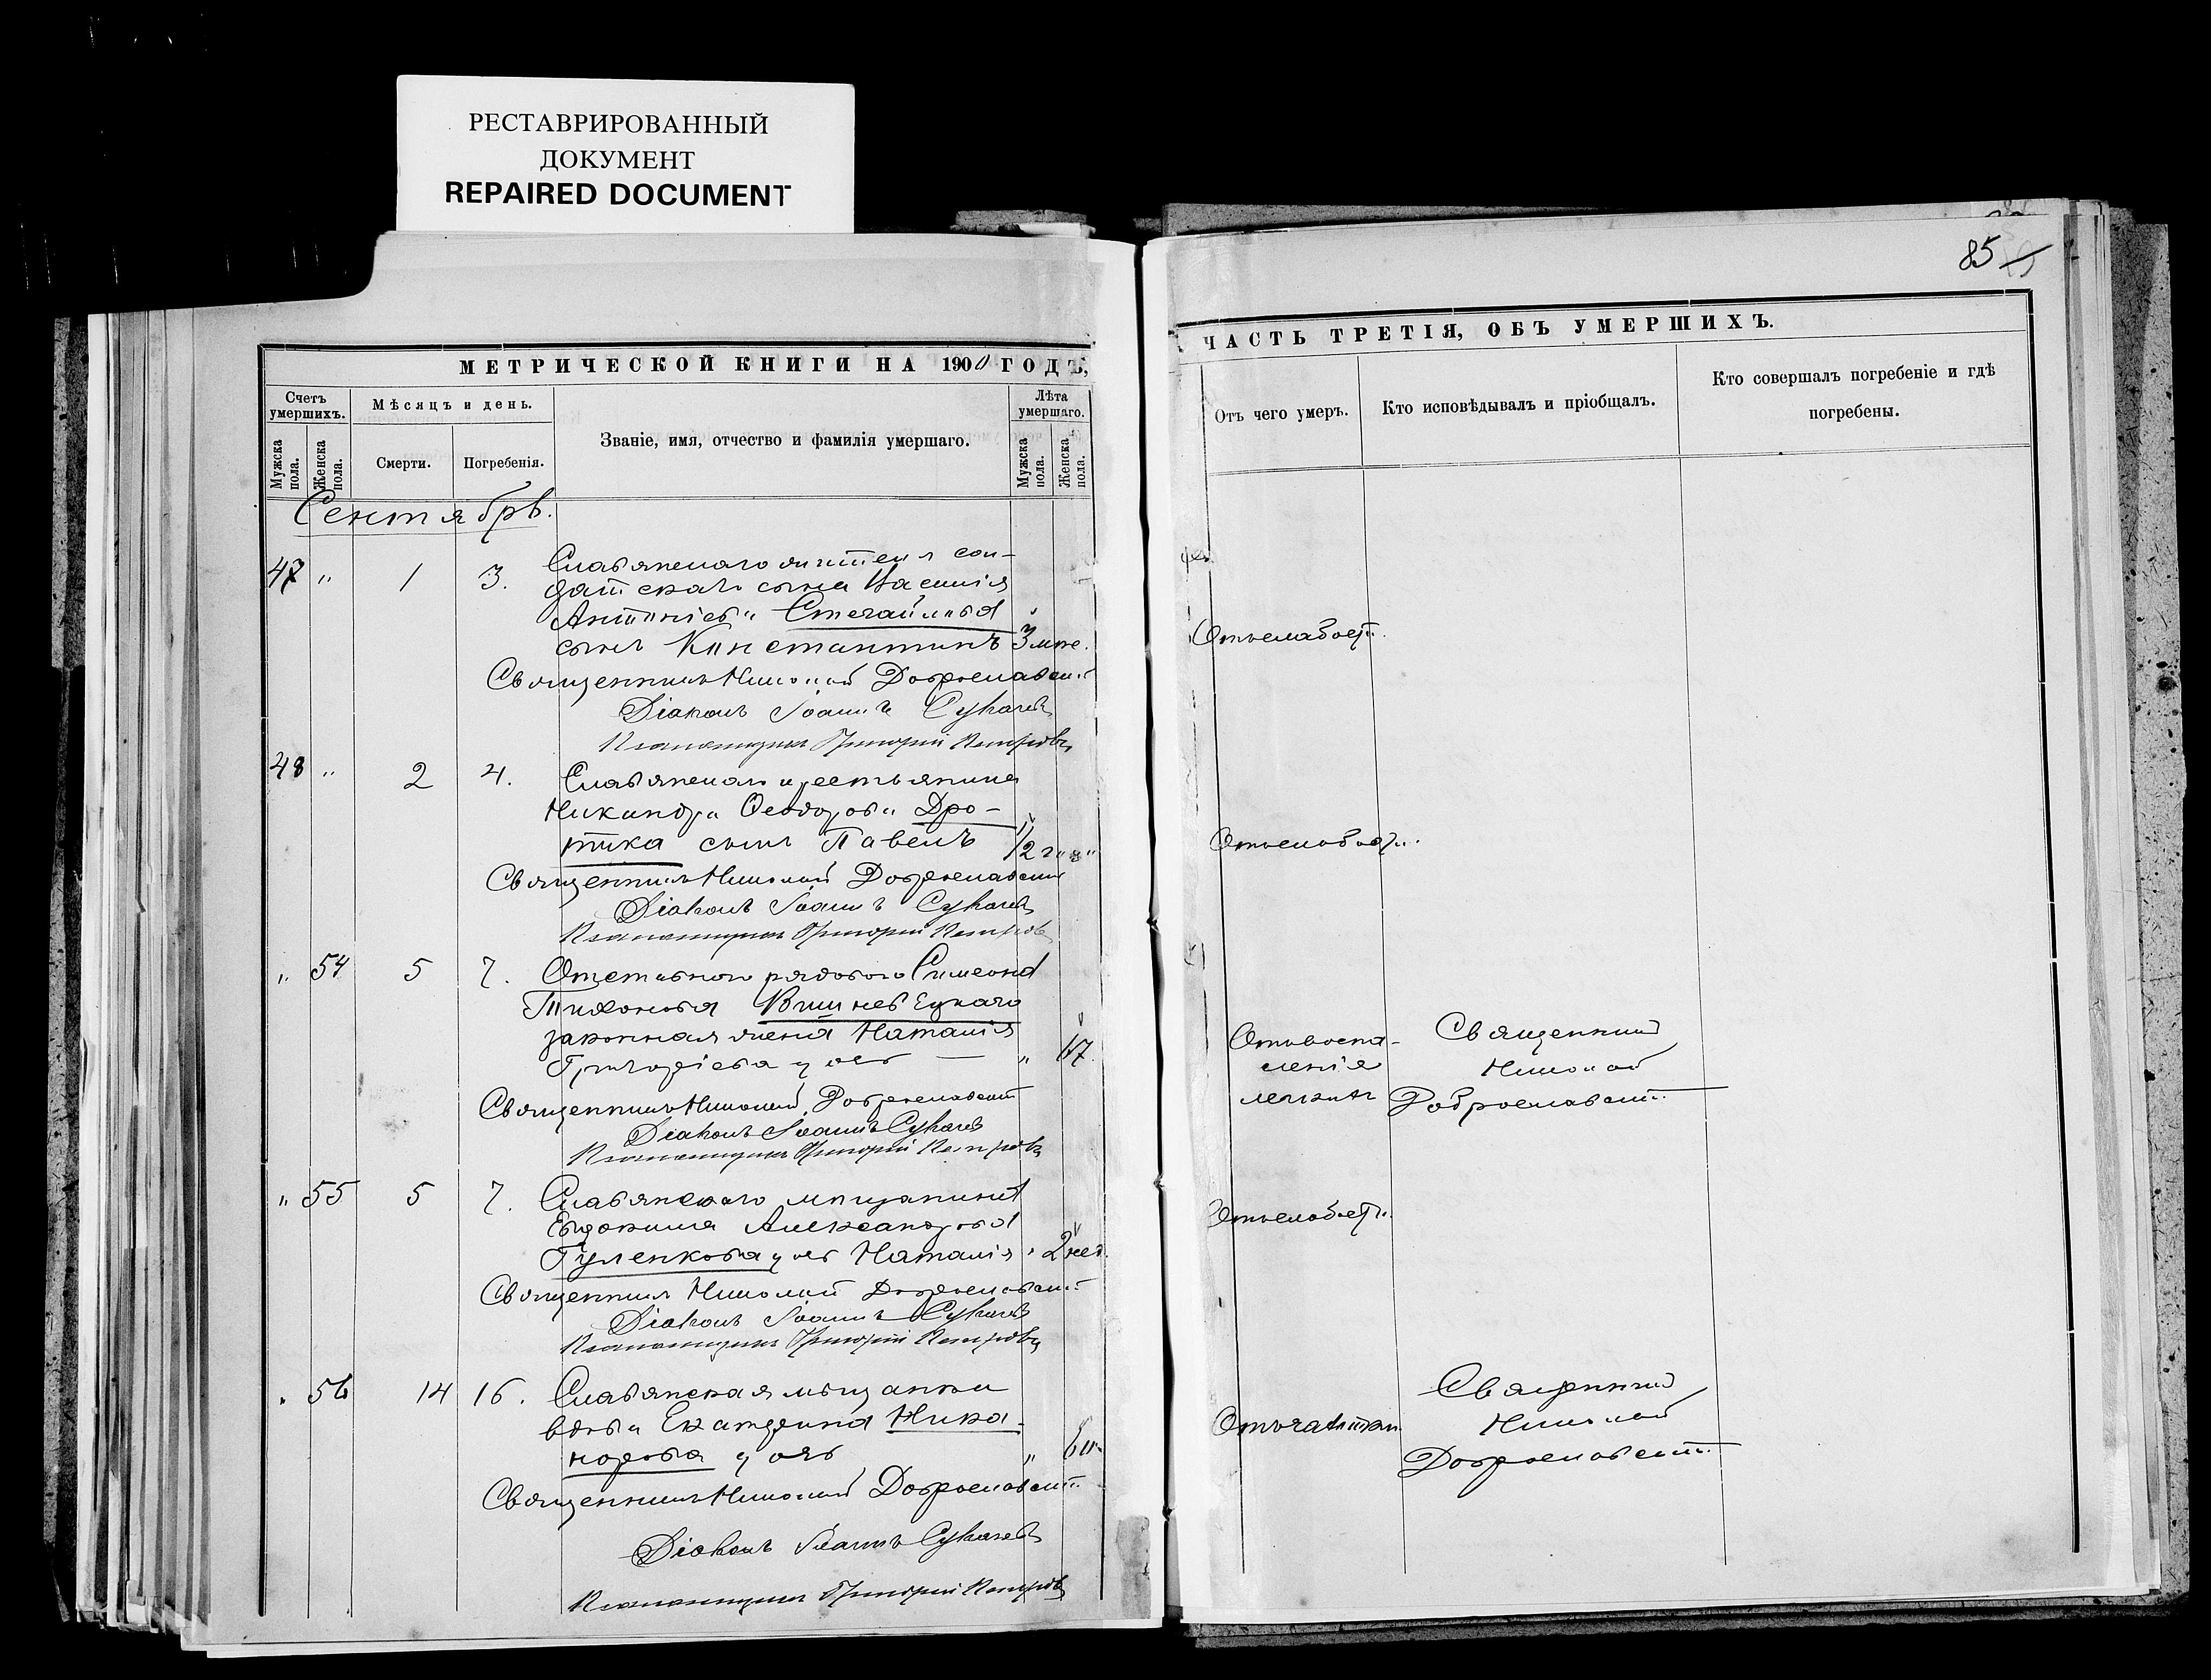 РЕСТАВРИРОВАННЫЙ
ДОКУМЕНТ
REPAIRED DOCUMENT
85
МЕТРИЧЕСКОЙ КНИГИ НА 1900 ГОДЪ,
Счетъ умершихъ.
Мужска пола.
Женска пола.
Мѣсяцъ и день.
Смерти.
Погребенія.
Званіе, имя, отчество и фамилія умершаго.
Лѣта умершаго.
Мужска пола.
Женска пола.
ЧАСТЬ ТРЕТІЯ, ОБЪ УМЕРШИХЪ.
Отъ чего умеръ.
Кто исповѣдывалъ и пріобщалъ.
Кто совершалъ погребеніе и гдѣ
погребены.
Сентябрь.
47 " 1 3. Славянскаго сол-
датскаго сына Василія
Антоніева
сынъ Константинъ 3
Священникъ Николай Доброславскій
Діаконъ Іоаннъ Сукачевъ
Псаломщикъ Григорій Петровъ
48 " 2 4. Славянскаго крестьянина
Никандра Ѳеодорова Дро-
тика сынъ Павелъ 1/2 года
Священникъ Николай Доброславскій
Діаконъ Іоаннъ Сукачевъ
Псаломщикъ Григорій Петровъ
" 54 5 7. Отставного рядового Симеона
Тихонова Вишневецкаго
законная жена Наталія
Григоріева дочь — "
Отъ воспа-
ленія
легкихъ
Священникъ
Николай
Доброславскій
Священникъ Николай Доброславскій
Діаконъ Іоаннъ Сукачевъ
Псаломщикъ Григорій Петровъ
" 55 5 7. Славянскаго мѣщанина
Евдокима Александрова
Гуленкова дочь Наталія " 2 нед.
Священникъ Николай Доброславскій
Діаконъ Іоаннъ Сукачевъ
Псаломщикъ Григорій Петровъ
" 56 14 16. Славянская мѣщанка
вдова Екатерина Ника-
норова дочь "
Отъ чахотки
Священникъ
Николай
Доброславскій
Священникъ Николай Доброславскій
Діаконъ Іоаннъ Сукачевъ
Псаломщикъ Григорій Петровъ